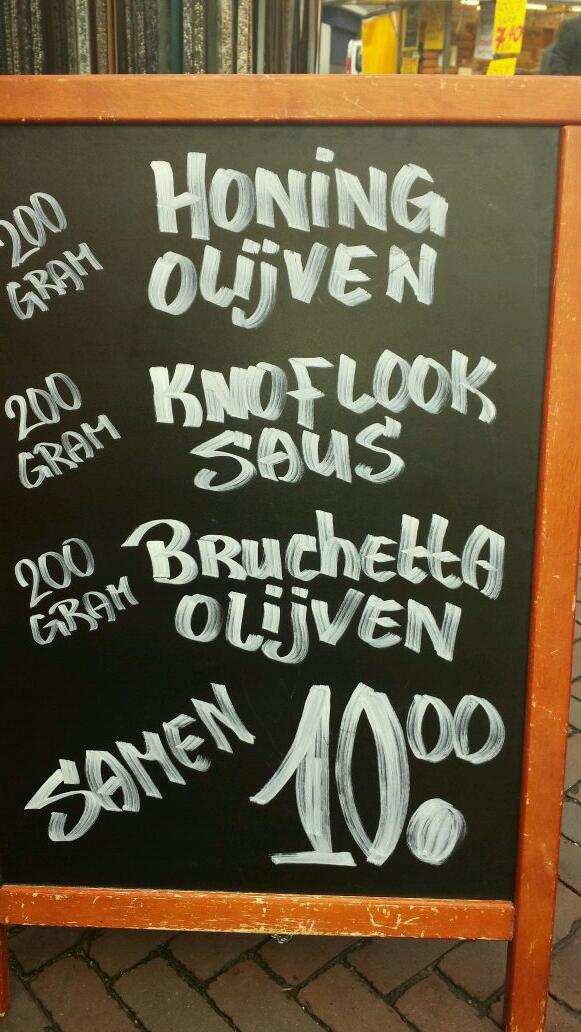 200 GRAM HONING
OLIJVEN
200 GRAM KNOFLOOK
SAUS
200 GRAM BRUCHETTA
OLIJVEN
SAMEN 10.00